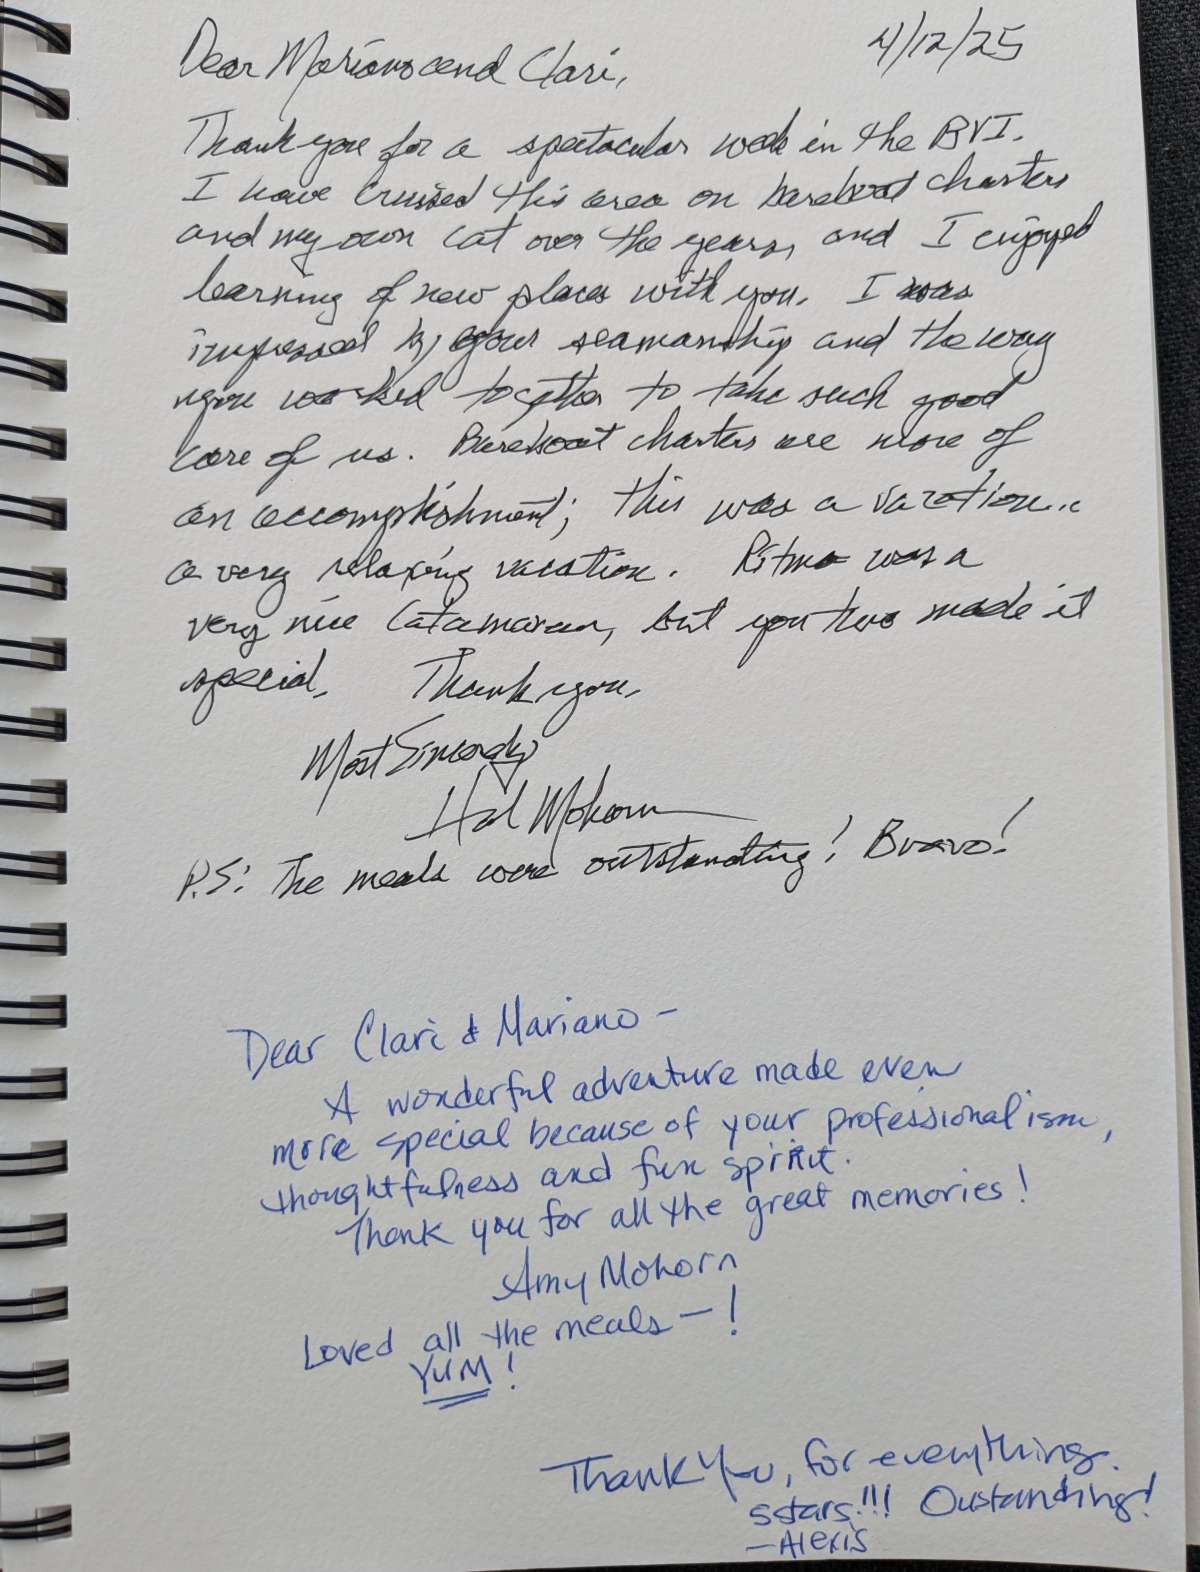 4/12/25
Dear Mariano and Clari,
Thank you for a spectacular week in the BVI.
I have cruised this area on bareboat charters
and my own cat over the years, and I enjoyed
learning of new places with you. I was
impressed by your seamanship and the way
you worked together to take such good
care of us. Bareboat charters are more of
an accomplishment; this was a vacation...
a very relaxing vacation. Ritmo was a
very nice Catamaran, but you two made it
special. Thank you.
Most Sincerely
Hal Mohorn
P.S: The meals were outstanding! Bravo!
Dear Clari & Mariano -
A wonderful adventure made even
more special because of your professionalism,
thoughtfulness and fun spirit.
Thank you for all the great memories!
Amy Mohorn
Loved all the meals - !
YUM!
Thank You, for everything.
5stars!!! Oustanding!
- Alexis